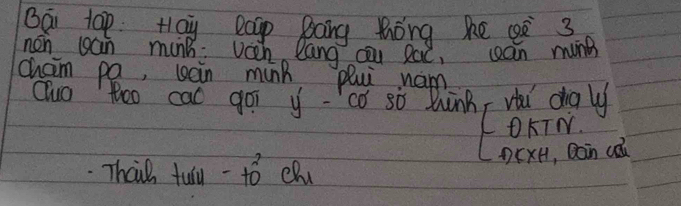 Bài tập: Hãy lập bảng thống kê về 3
nền văn minh: Văn lang âu lạc, văn minh
chăm pa, văn minh phù nam
theo các gợi ý - cơ sở hình vị trí địa lý
ĐKTN.
ĐKXH, Dân cư
- Thành tựu - tổ chi